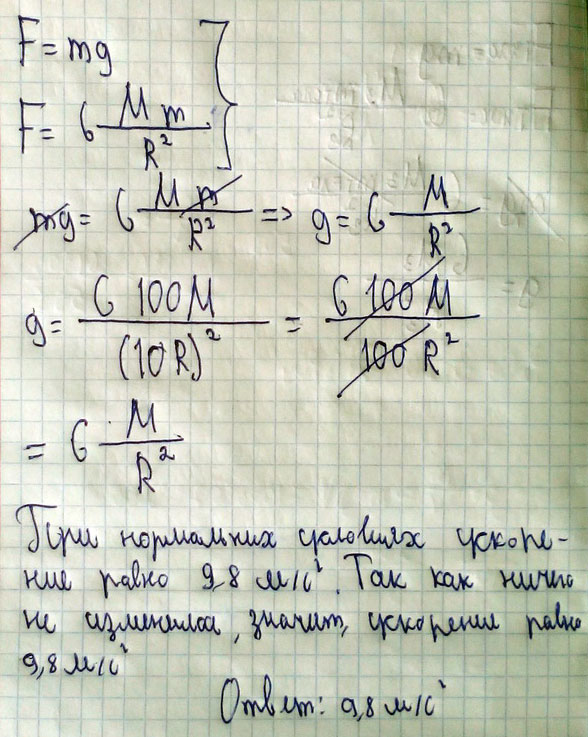 F = mg
F = G Mm/R²
mg = G Mm/R² => g = G M/R²
g = G 100M/(10R)² = G 100M/100R²
= G M/R²
При нормальних условиях ускоре-
ние равно 9,8 м/с². Так как ничего
не изменилса, значит, ускорение равно
9,8 м/с²
Ответ: 9,8 м/с²